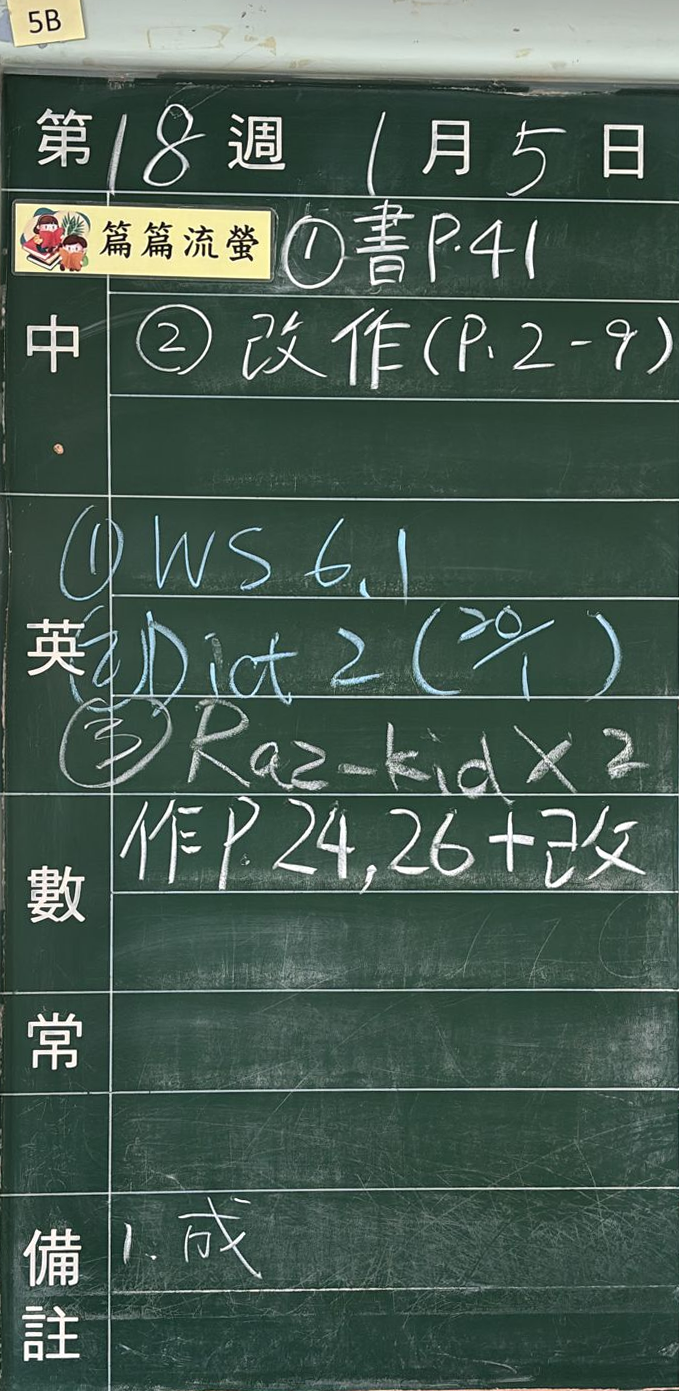 5B
第18週 1月5日
篇篇流螢 ①書P.41
中 ②改作(P.2-9)
①WS 6.1
英 ②Dict 2 (20/1)
③Raz-kid×2
作P.24,26+改
數
常
1. 成
備註